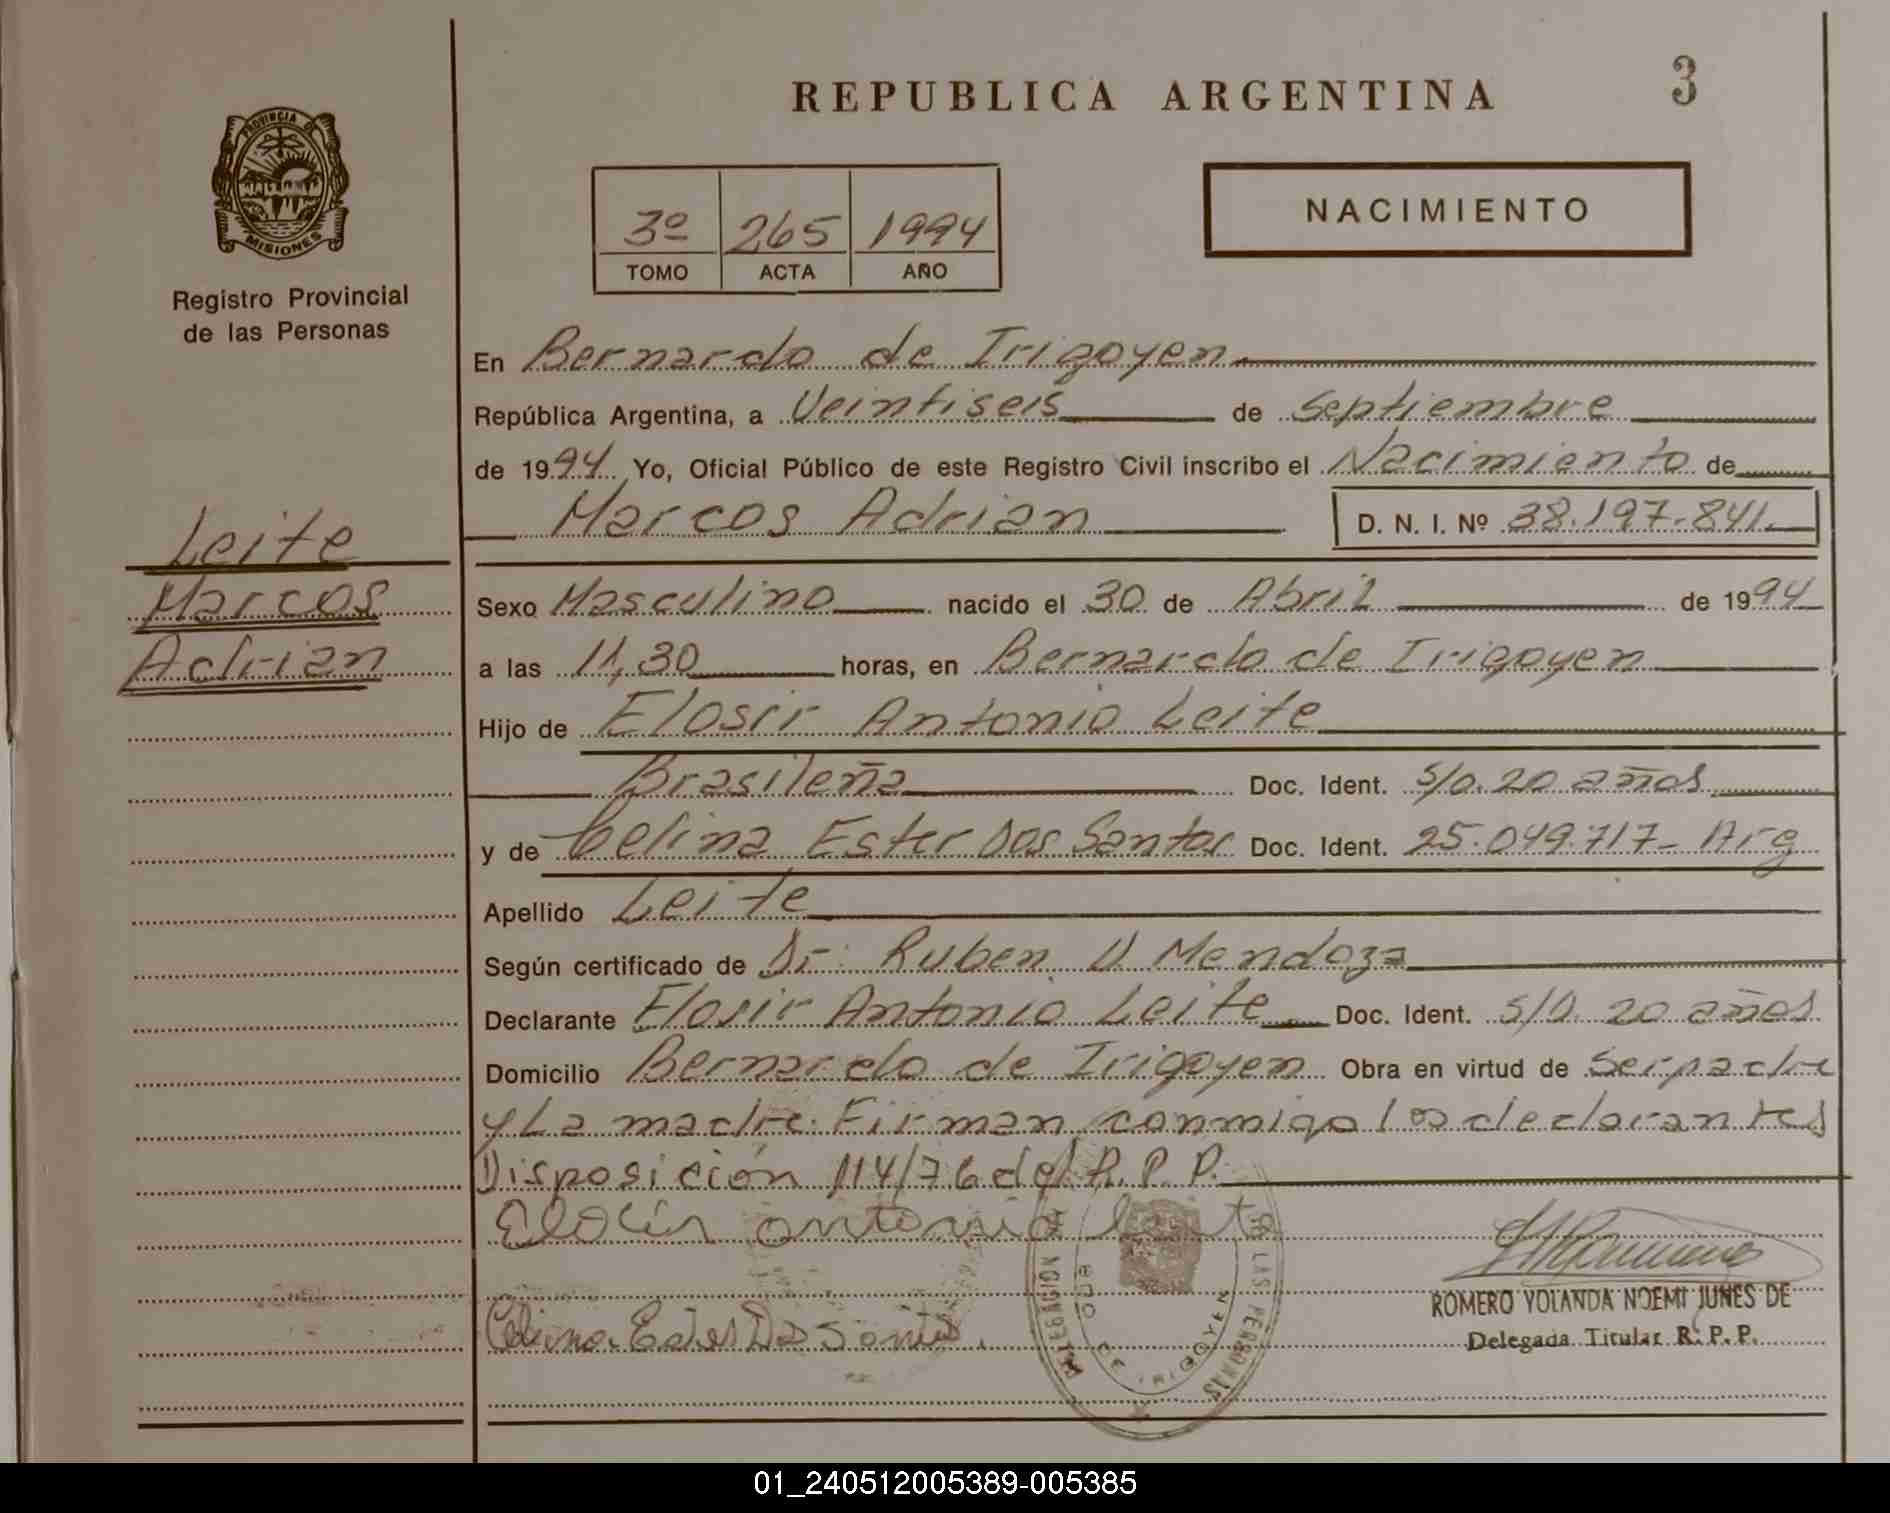 REPUBLICA ARGENTINA
3
PROVINCIA DE
MISIONES
Registro Provincial
de las Personas
3º 265 1994
TOMO ACTA AÑO
NACIMIENTO
En Bernardo de Irigoyen
República Argentina, a Veintiseis de Septiembre
de 1994 Yo, Oficial Público de este Registro Civil inscribo el Nacimiento de
Marcos Adrian D. N. I. Nº 38.197.841.
Leite
Marcos
Adrian
Sexo Masculino nacido el 30 de Abril de 1994
a las 11,30 horas, en Bernardo de Irigoyen
Hijo de Elosir Antonio Leite
Brasileña Doc. Ident. S/D. 20 años
y de Celina Ester Dos Santos Doc. Ident. 25.049.717- Arg
Apellido Leite
Según certificado de Dr. Ruben D. Mendoza
Declarante Elosir Antonio Leite Doc. Ident. S/D. 20 años
Domicilio Bernardo de Irigoyen Obra en virtud de Ser padre
y La madre. Firman conmigo los declarantes
Disposición 114/76 del R. P. P.
antonio
DELEGACION LAS PERSONAS
DE IRIGOYEN
ROMERO YOLANDA NOEMI JUNES DE
Delegada Titular R. P. P.
01_240512005389-005385